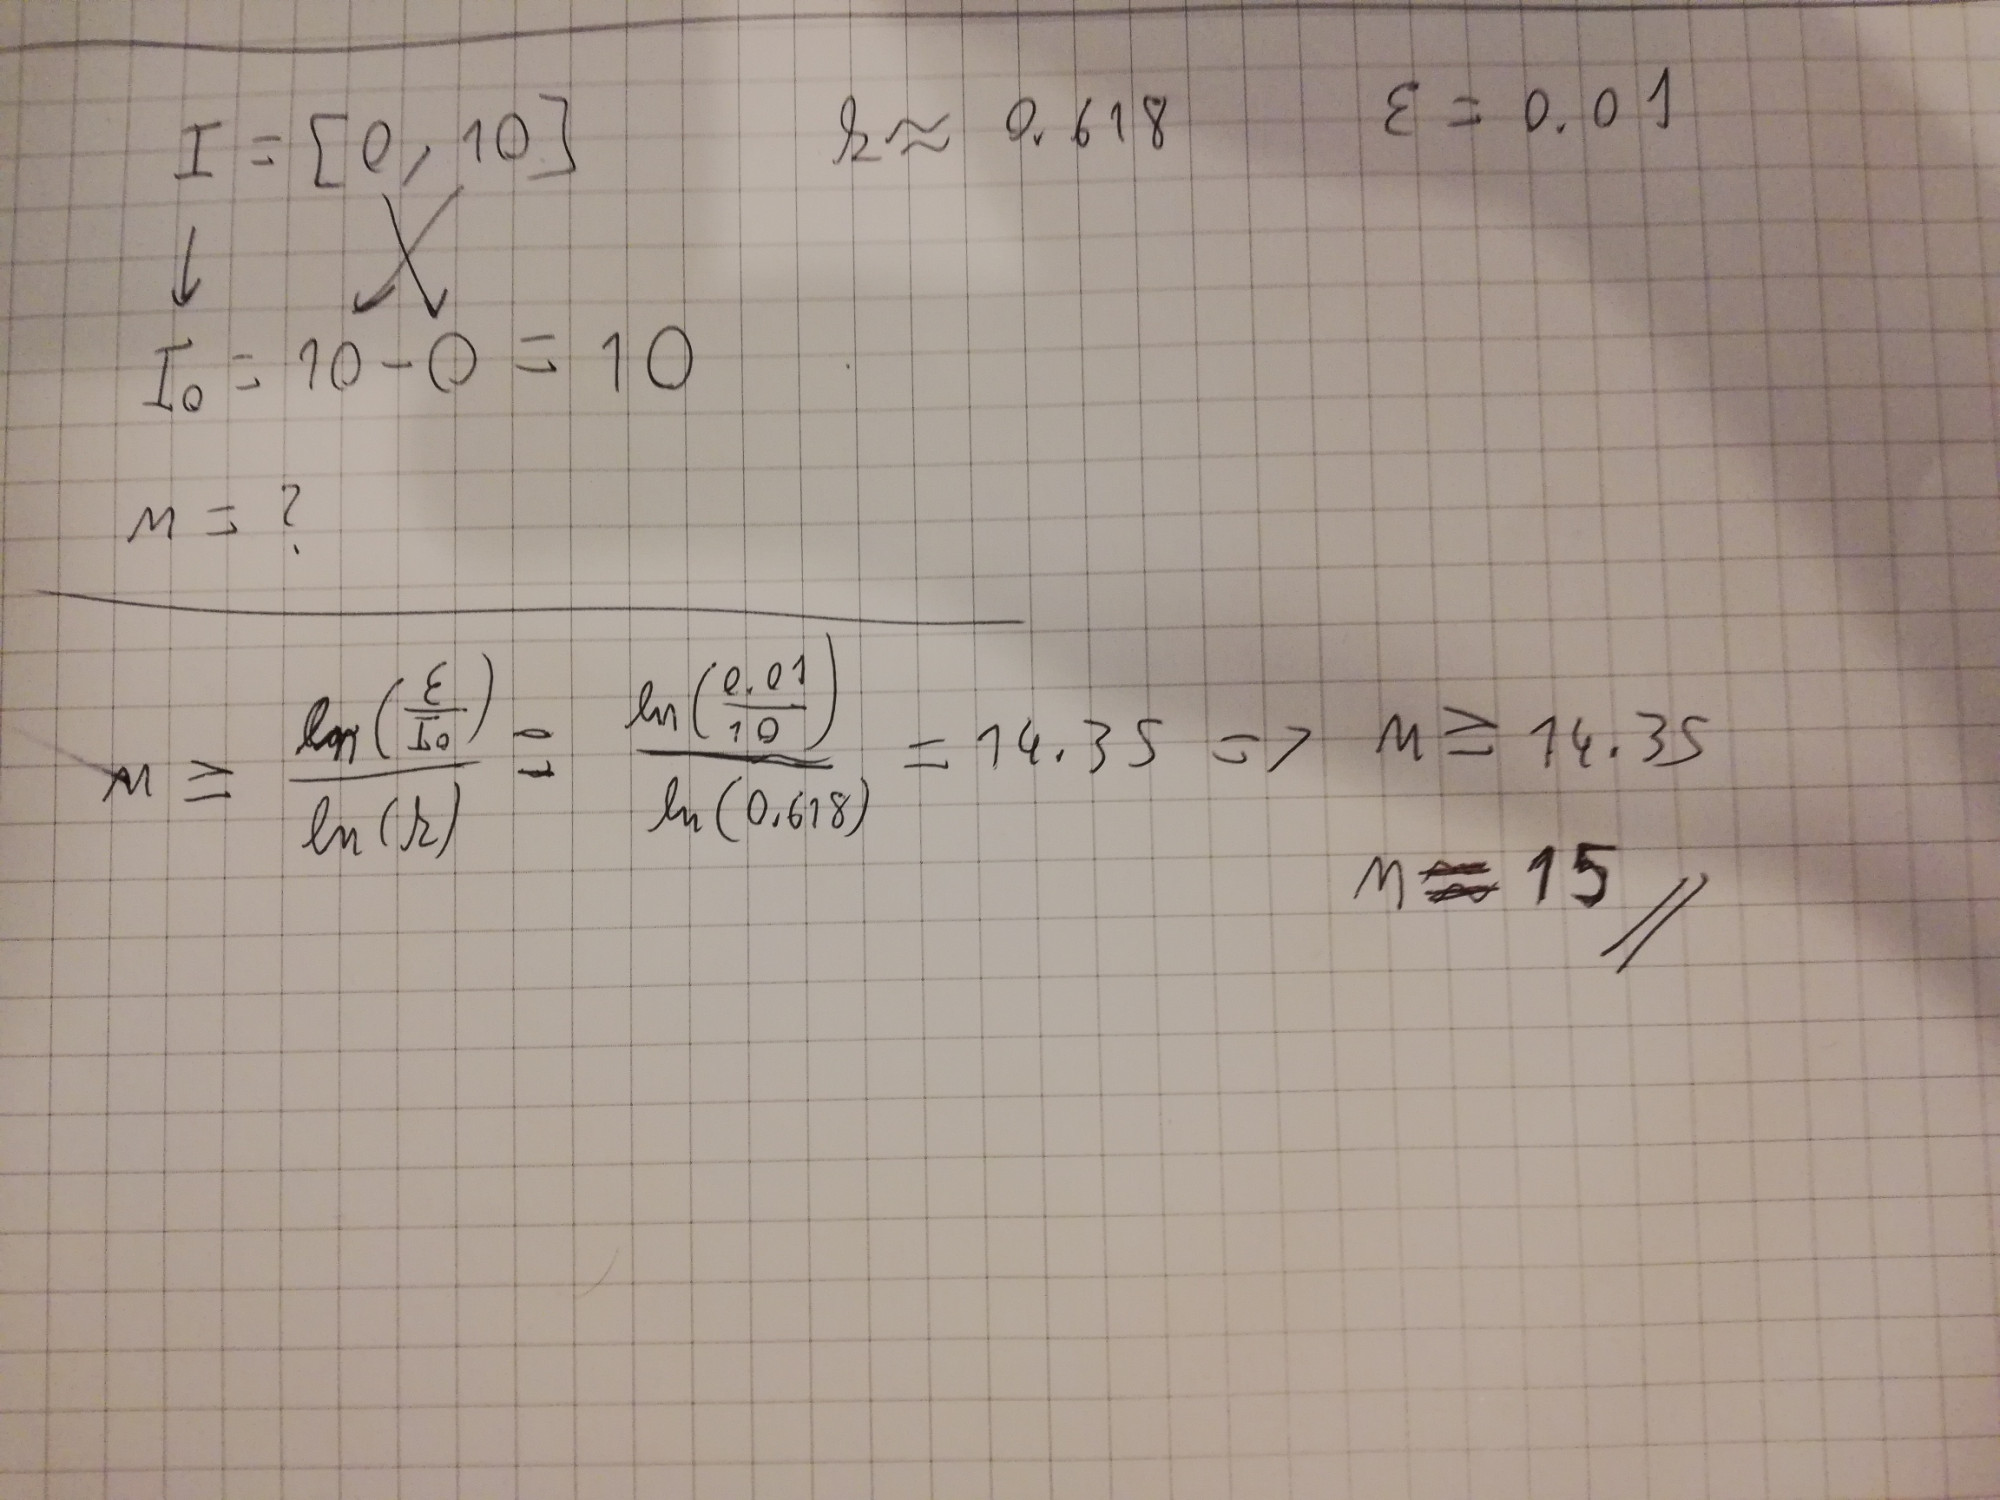 I = [0, 10] r ≈ 0.618 ε = 0.01
I₀ = 10 - 0 = 10
n = ?
n ≥ ln(ε/I₀)/ln(r) = ln(0.01/10)/ln(0.618) = 14.35 => n ≥ 14.35
n = 15